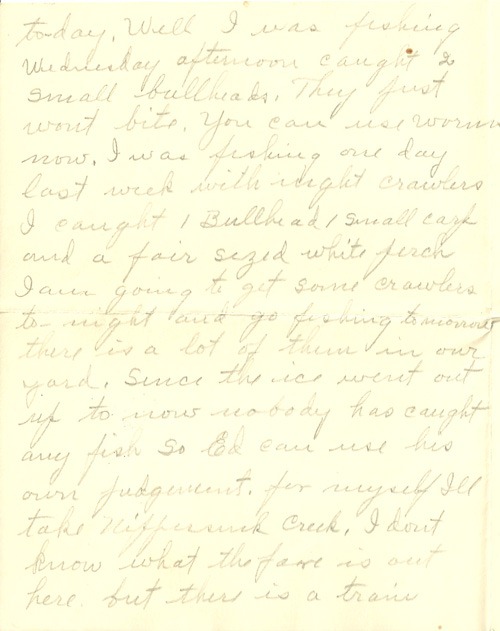 to-day. Well I was fishing
Wednesday afternoon caught 2
small bullheads. They just
wont bite. You can use worms
now. I was fishing one day
last week with night crawlers
I caught 1 Bullhead 1 small carp
and a fair sized white perch
I am going to get some crawlers
to-night and go fishing tomorrow
there is a lot of them in our
yard. Since the ice went out
up to now nobody has caught
any fish so Ed can use his
own judgement. for myself Ill
take Nippersink Creek. I dont
know what the fare is out
here. but there is a train